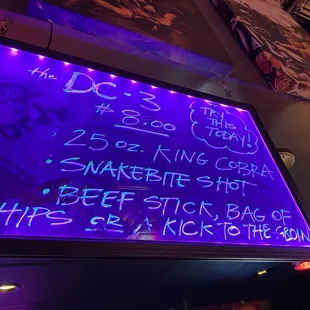 the DC-3
$8.00
TRY
THIS
TODAY!
25 oz. KING COBRA
• SNAKEBITE SHOT
• BEEF STICK, BAG OF
CHIPS OR A KICK TO THE GROIN